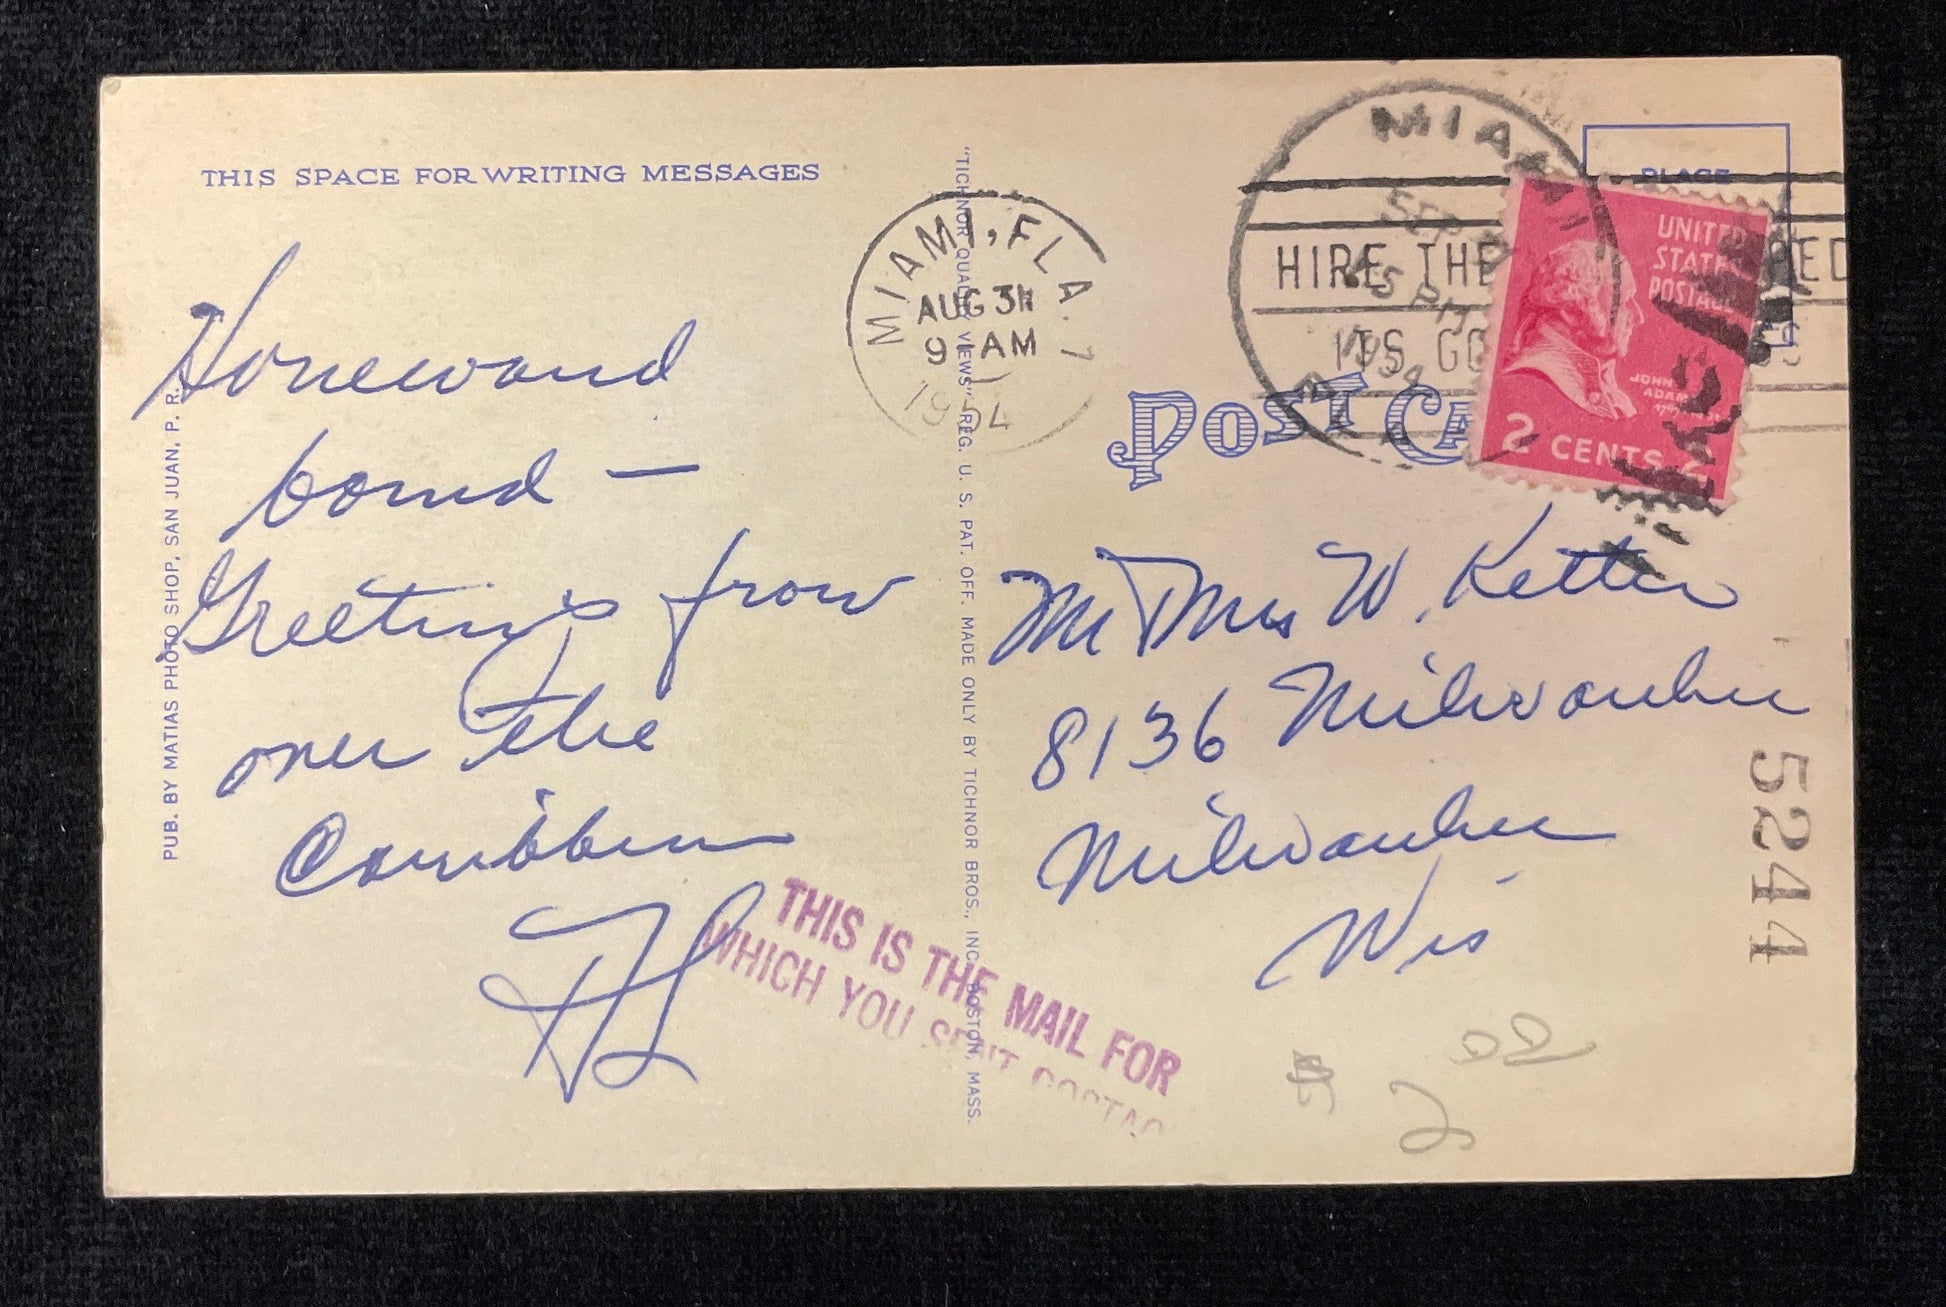 THIS SPACE FOR WRITING MESSAGES
Homeward
bound —
Greetings from
over the
Caribbean
PUB. BY MATIAS PHOTO SHOP, SAN JUAN, P. R.
"TICHNOR QUALITY VIEWS" REG. U. S. PAT. OFF. MADE ONLY BY TICHNOR BROS., INC., BOSTON, MASS.
MIAMI, FLA. 7
AUG 31
9 AM
1954
MIAMI
SEP
PM
1954
FLA
HIRE THE
ITS GO
PLACE
UNITED
STATES
POSTAGE
JOHN
ADAMS
2 CENTS 2
POST CA
Mr Mrs W. Ketter
8136 Milwaukee
Milwaukee
Wis
5244
THIS IS THE MAIL FOR
WHICH YOU SENT POSTAG
$ 2 00